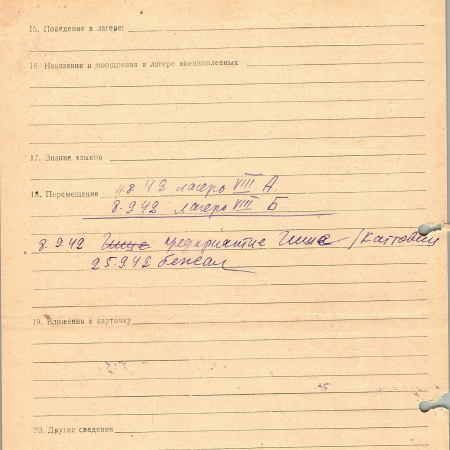 15. Поведение в лагере:
16. Наказания и поощрения в лагере военнопленных
17. Знание языков
18. Перемещения 11.8.42 лагерь VIII А
8.9.42 лагерь VIII Б
8.9.42 предприятие Гише /Каттовиц
25.9.42 бежал
19. Вложения в карточку
20. Другие сведения